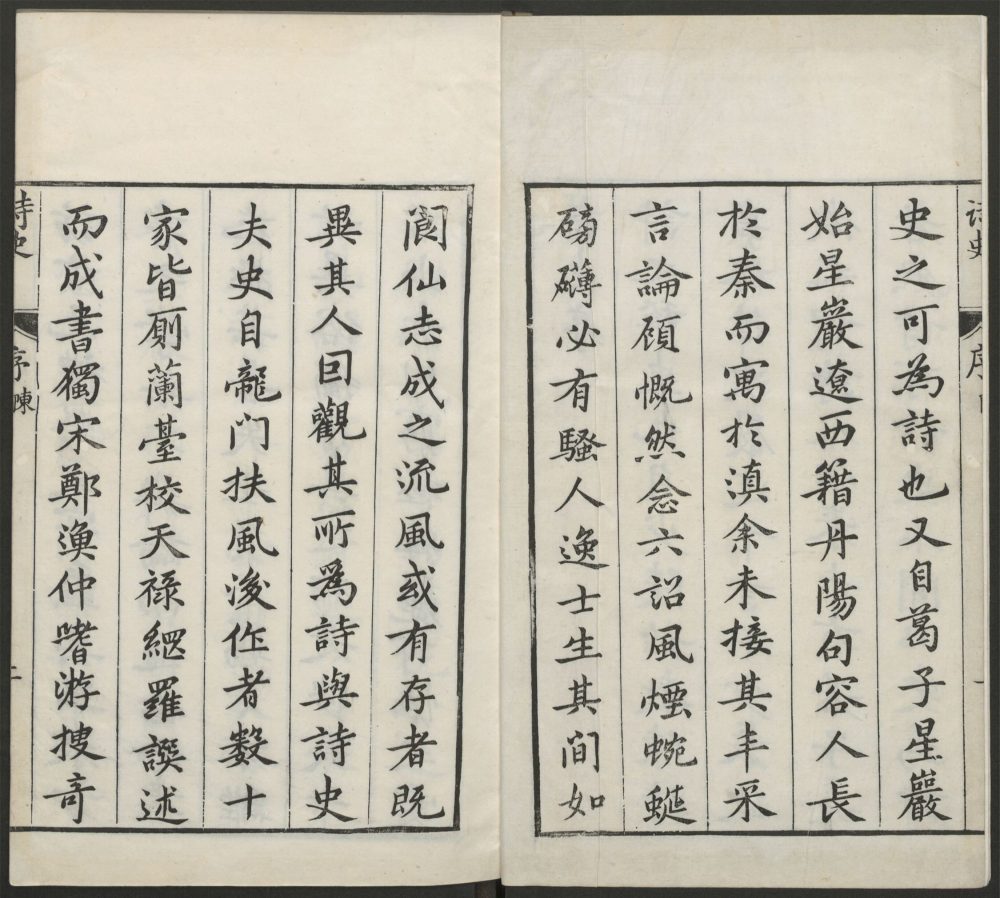 史之可為詩也又自葛子星巖
始星巖遼西籍丹陽句容人長
於秦而寓於滇余未接其丰采
言論頎慨然念六詔風煙蜿蜒
磅礴必有騷人逸士生其間如
閬仙志成之流風或有存者既
畢其人回觀其所為詩與詩史
夫史自龍门扶風後作者數十
家皆厠蘭臺校天祿網羅譔述
而成書獨宋鄭漁仲嗜游搜奇
詩史
序
詩史
序陳
二